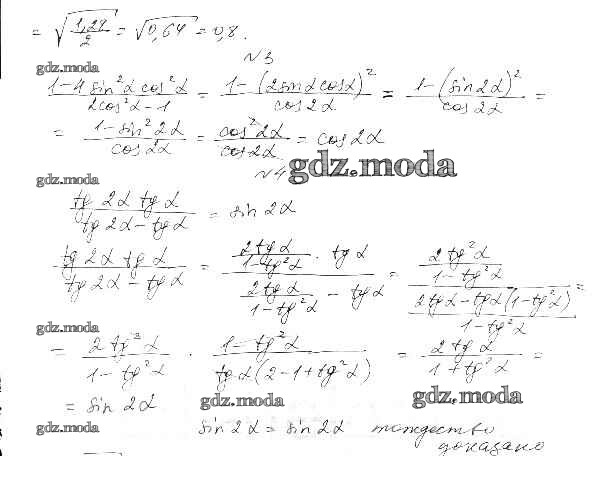 = √(1,28/2) = √0,64 = 0,8.
N 3
gdz.moda
(1-4 sin²α cos²α)/(2cos²α - 1) = (1-(2sinα cosα)²)/(cos2α) = (1-(sin2α)²)/(cos2α) =
= (1-sin²2α)/(cos2α) = (cos²2α)/(cos2α) = cos2α
N 4 gdz.moda
gdz.moda
(tg 2α tg α)/(tg 2α - tg α) = sin 2α
(tg 2α tg α)/(tg 2α - tg α) = ((2tg α)/(1-tg²α) · tg α)/((2tg α)/(1-tg²α) - tg α) = ((2tg²α)/(1-tg²α))/((2tgα-tgα(1-tg²α))/(1-tg²α)) =
gdz.moda
= (2tg²α)/(1-tg²α) · (1-tg²α)/(tgα(2-1+tg²α)) = (2tg α)/(1+tg²α) =
= sin 2α gdz.moda gdz.moda
gdz.moda sin 2α = sin 2α тождество
доказано